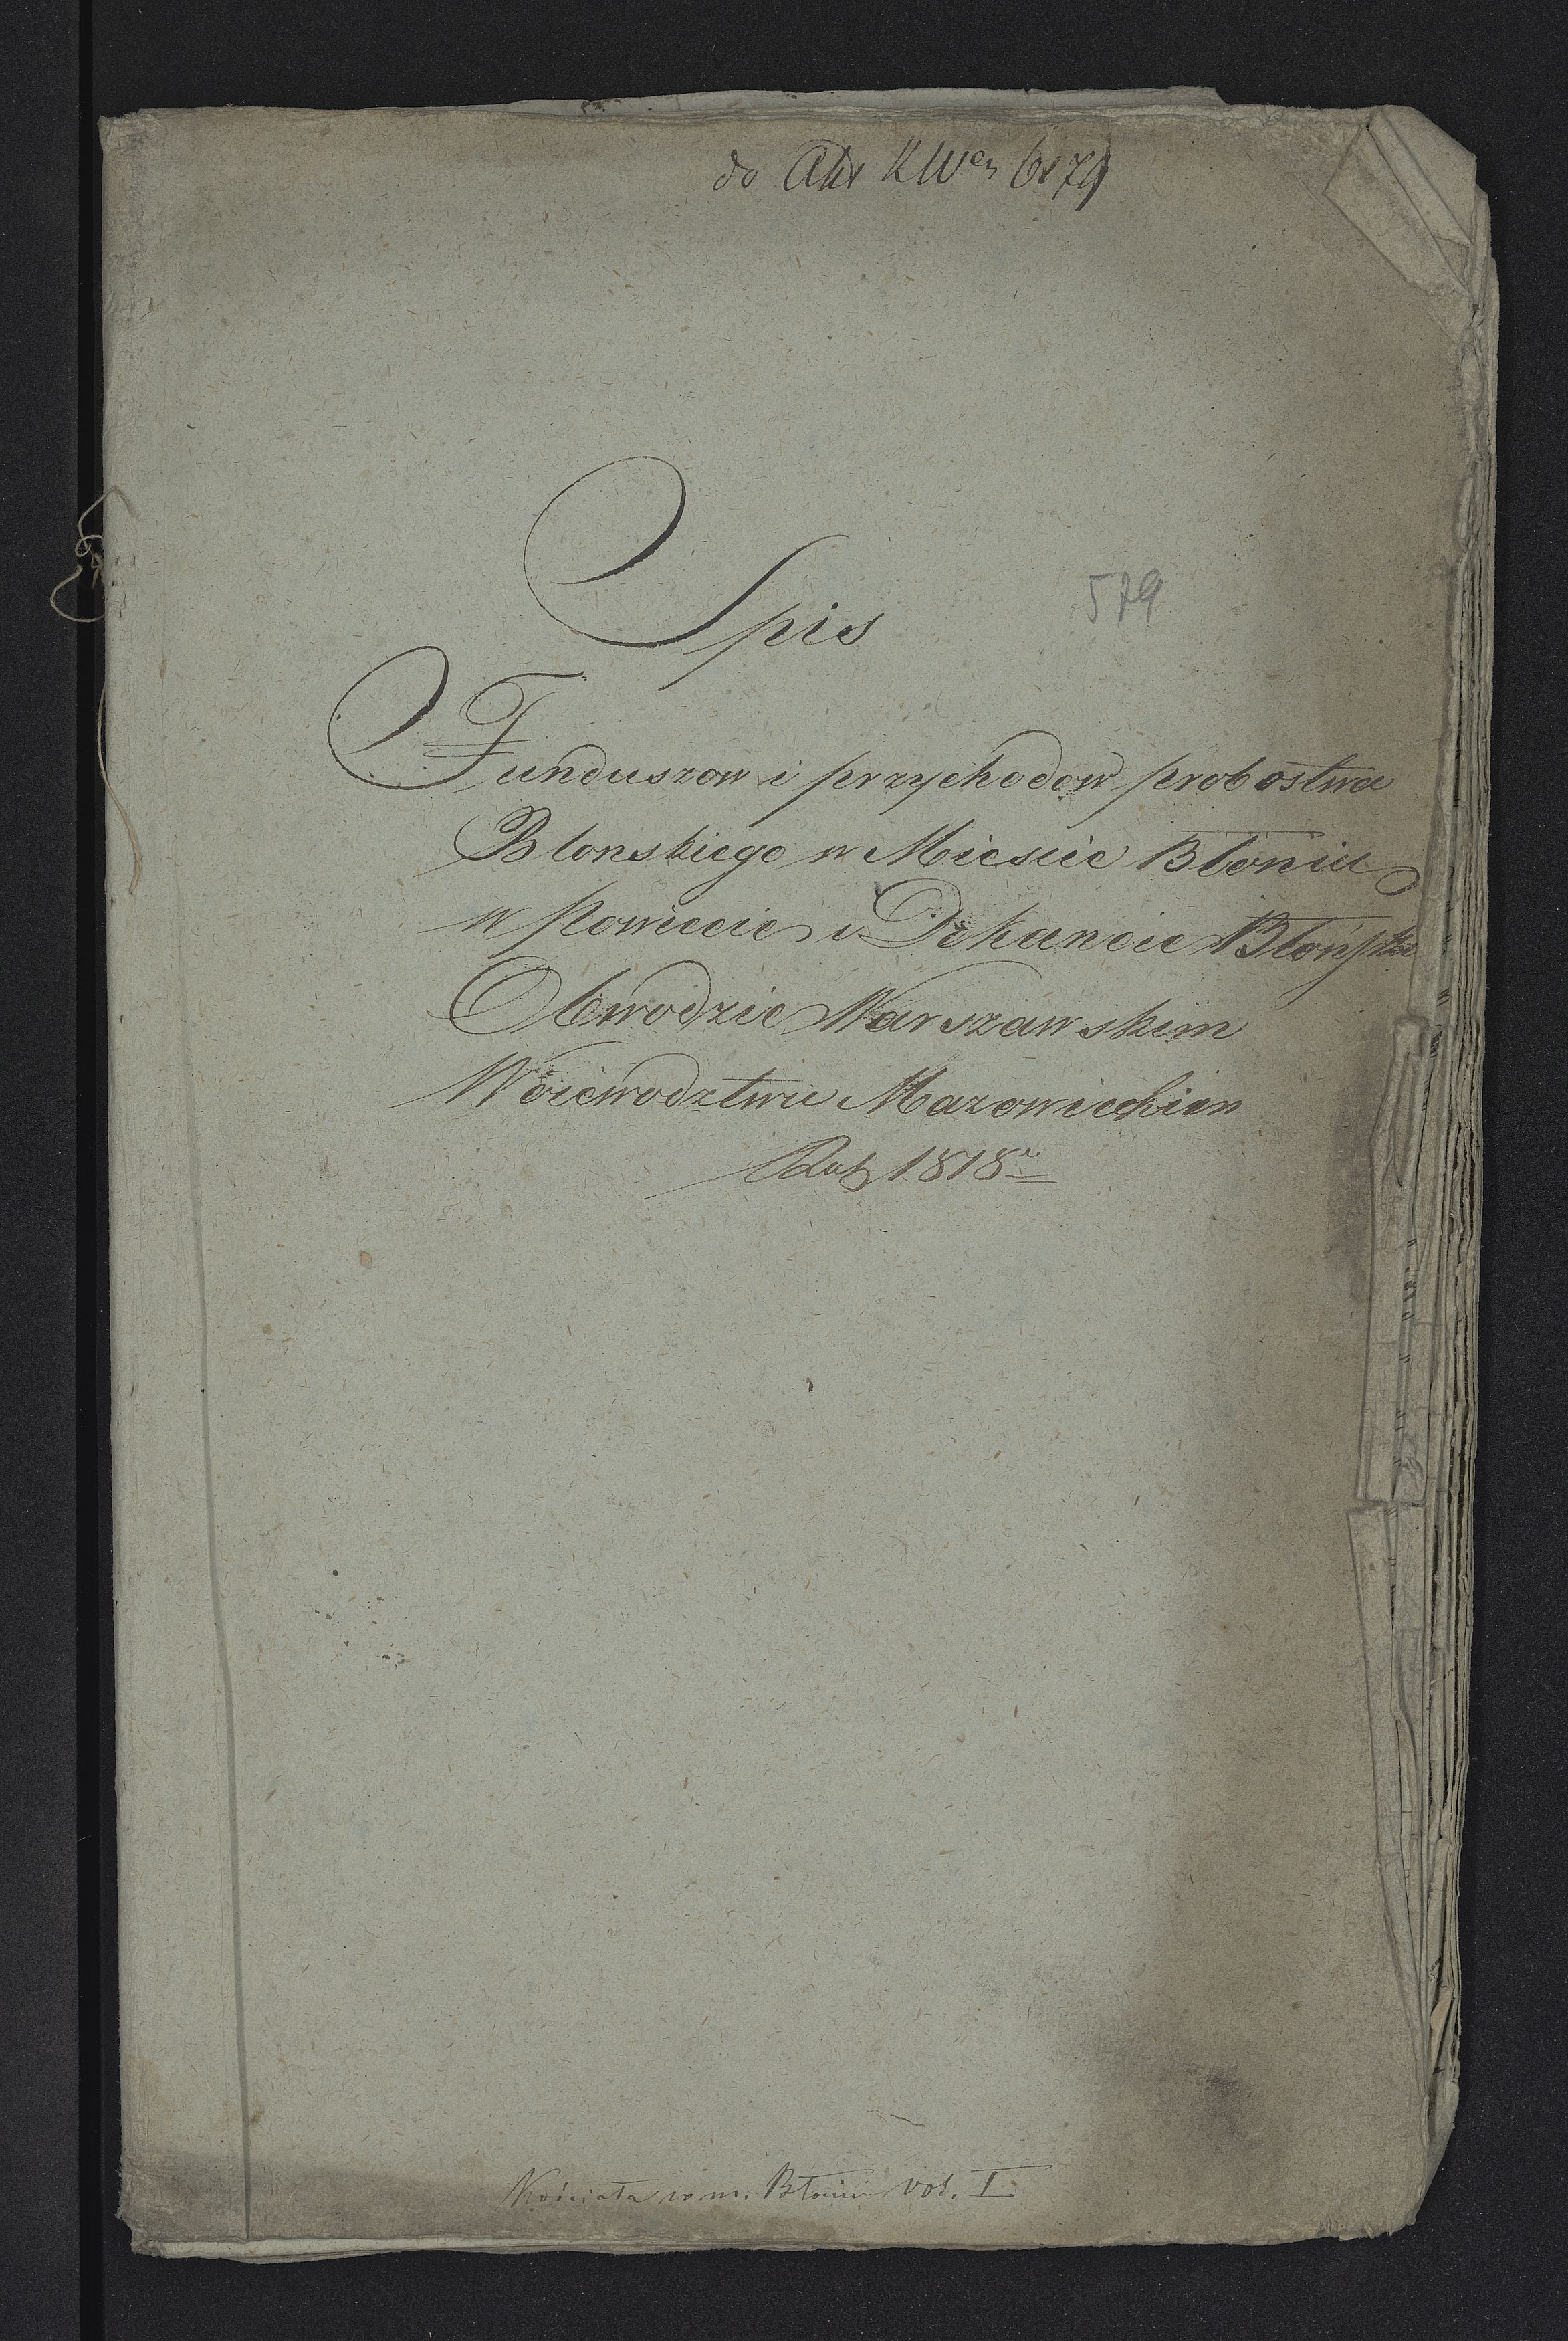 do Akt KWej 6879
Spis
579
Funduszow i przychodow probostwa
Blonskiego w Miescie Błoniu
w Powiecie i Dekanacie Błońskim
Obwodzie Warszawskim
Woiewodztwie Mazowieckiem
Rok 1818
Kościoła w m. Błoniu vol. I.